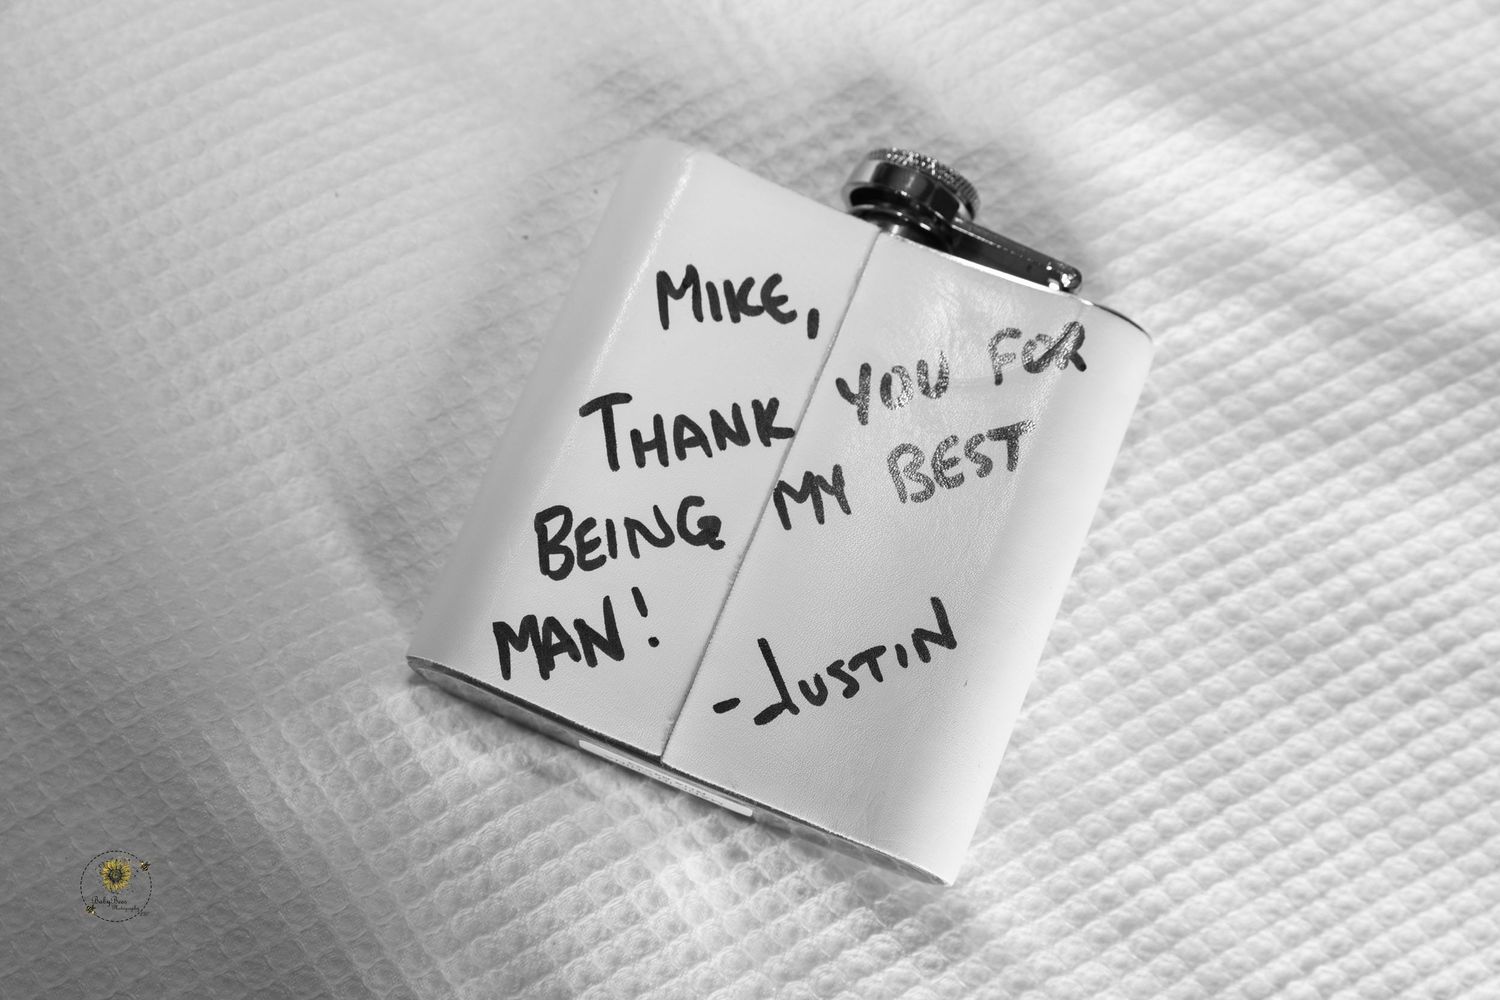 MIKE,
THANK YOU FOR
BEING MY BEST
MAN!
-JUSTIN
BabyBees
Photography